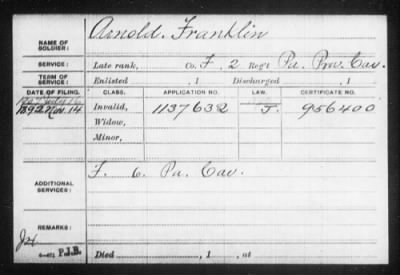 NAME OF SOLDIER: Arnold, Franklin
SERVICE: Late rank, Co. F, 2 Reg't Pa. Prov. Cav.
TERM OF SERVICE: Enlisted , 1 Discharged , 1
DATE OF FILING. CLASS. APPLICATION NO. LAW. CERTIFICATE NO.
1892 Nov. 14 Invalid, 1137632 J. 956400
Widow,
Minor,
ADDITIONAL SERVICES: F. 6 Pa. Cav.
REMARKS:
6—071 P.J.B.
Died , 1 , at